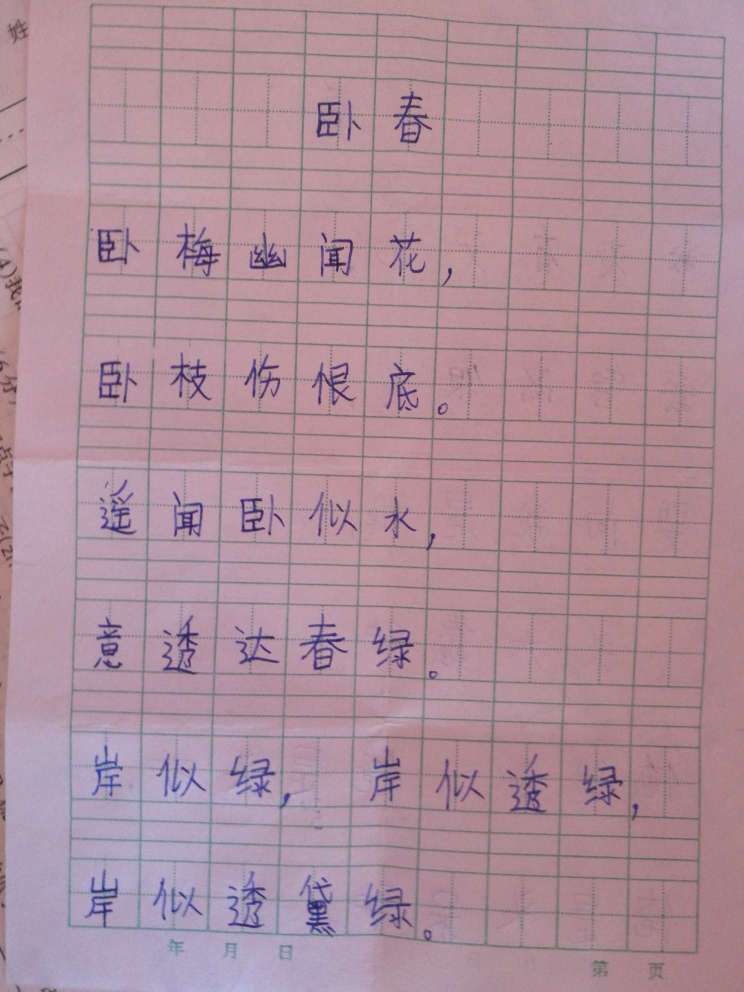 卧春
卧梅幽闻花,
卧枝伤恨底。
遥闻卧似水,
意透达春绿。
岸似绿,岸似透绿,
岸似透黛绿。
年 月 日
第 页